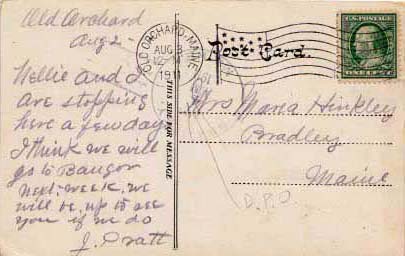 Old Orchard
Aug 2 -
Nellie and I
are stopping
here a few days
I think we will
go to Bangor
next week, we
will be up to see
you if we do
J. Pratt
THIS SIDE FOR MESSAGE
OLD ORCHARD · MAINE
AUG 3
12 - M
1911
Post Card.
U.S. POSTAGE
ONE CENT
Mrs Maria Hinkley
Bradley
Maine
D.P.O